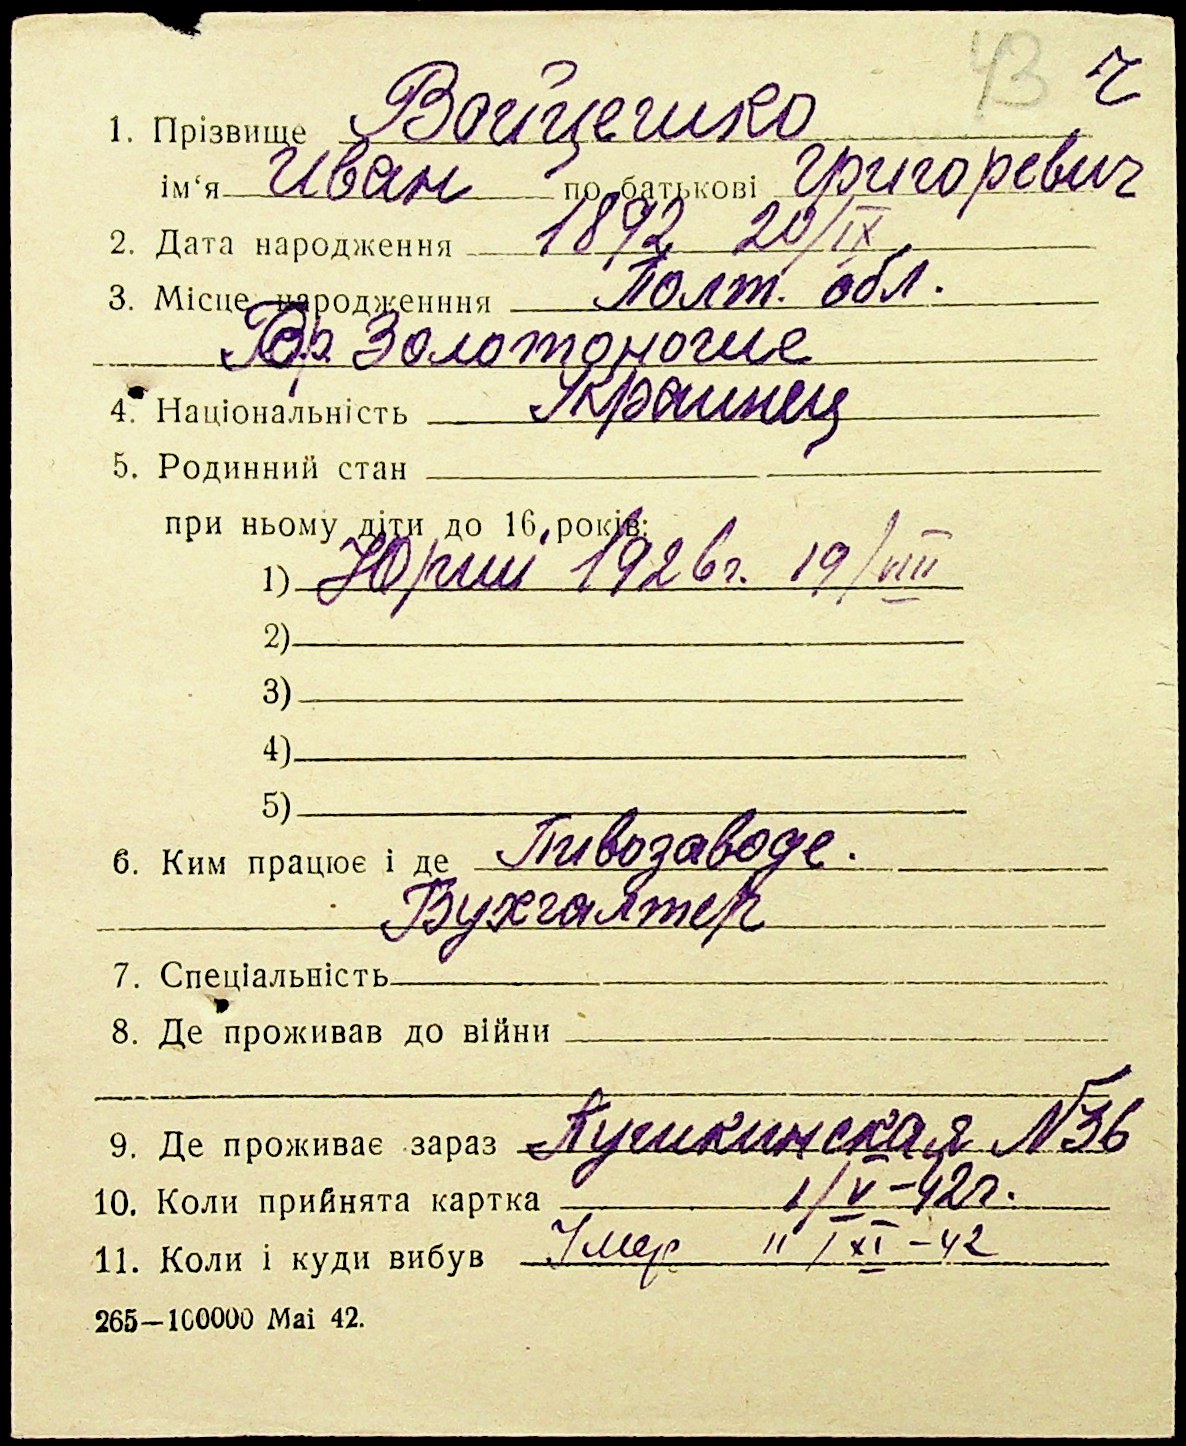 43 ч
1. Прізвище Войцешко
ім‘я Иван по батькові Григоревич
2. Дата народження 1892 20/IX
3. Місце народженння Полт. обл.
Гор. Золотоногие
4. Національність Украинец
5. Родинний стан
при ньому діти до 16 років:
1) Юрий 1926г. 19/VIII
2)
3)
4)
5)
6. Ким працює і де Пивозаводе.
Бухгалтер
7. Спеціальність
8. Де проживав до війни
9. Де проживає зараз Пушкинская №36
10. Коли прийнята картка 1/V-42г.
11. Коли і куди вибув Умер 11/XI-42
265—100000 Mai 42.